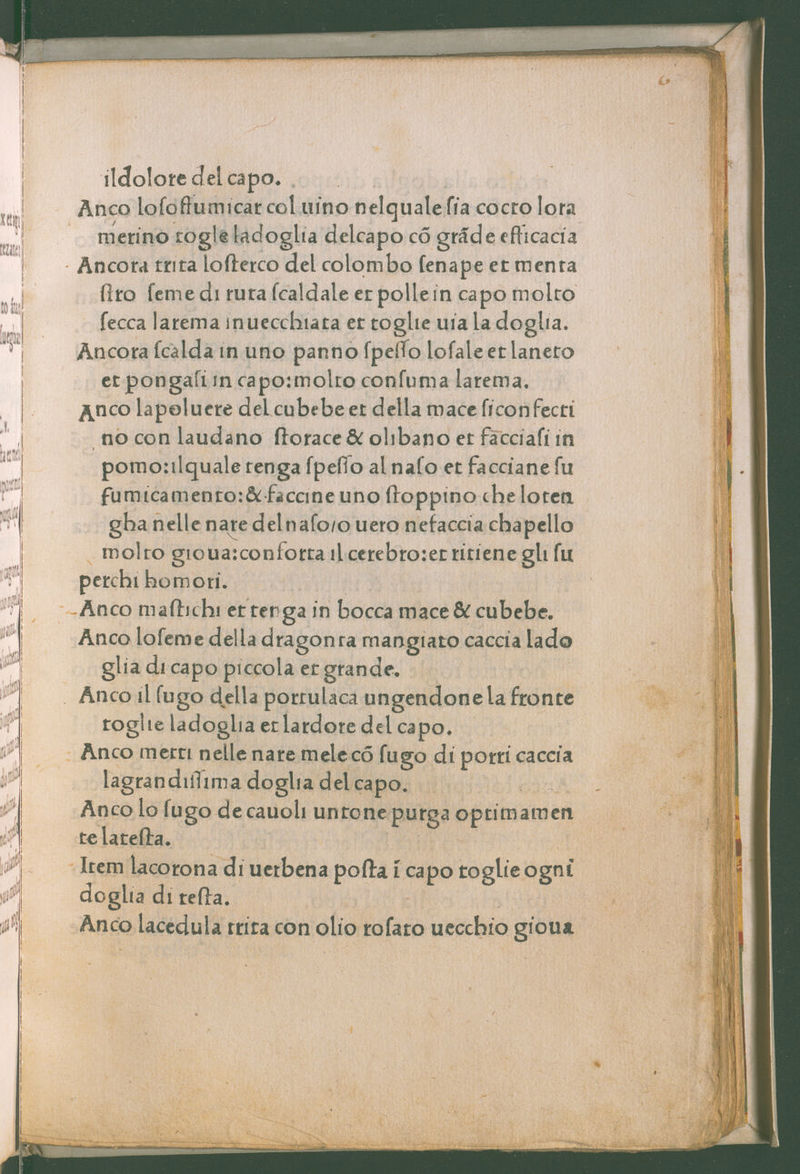 6
ildolore del capo.
Anco loſoffumicar col uino nelquale ſia cocto lora
merino togle ladoglia delcapo cō grāde efficacia
Ancora trita loſterco del colombo ſenape et menta
ſtro ſeme di ruta ſcaldale et polle in capo molto
ſecca larema inuecchiata et toglie uia la doglia.
Ancora ſcalda in uno panno ſpeſſo loſale et laneto
et pongaſi in capo:molto conſuma larema.
Anco lapoluere del cubebe et della mace ſiconfecti
no con laudano ſtorace & olibano et facciaſi in
pomo:ilquale tenga ſpeſſo al naſo et facciane ſu
fumicamento:& faccine uno ſtoppino che loten
gha nelle nare delnaſo/o uero nefaccia chapello
molto gioua:conforta il cerebro:et ritiene gli ſu
perchi homori.
Anco maſtichi et tenga in bocca mace & cubebe.
Anco loſeme della dragontea mangiato caccia lado
glia di capo piccola et grande.
Anco il ſugo della portulaca ungendone la fronte
toglie ladoglia et lardore del capo.
Anco metti nelle nare mele cō ſugo di porri caccia
lagrandiſſima doglia del capo.
Anco lo ſugo de cauoli untone purga optimamen
te lateſta.
Item lacorona di uerbena poſta ī capo toglie ogni
doglia di teſta.
Anco lacedula trita con olio roſato uecchio gioua